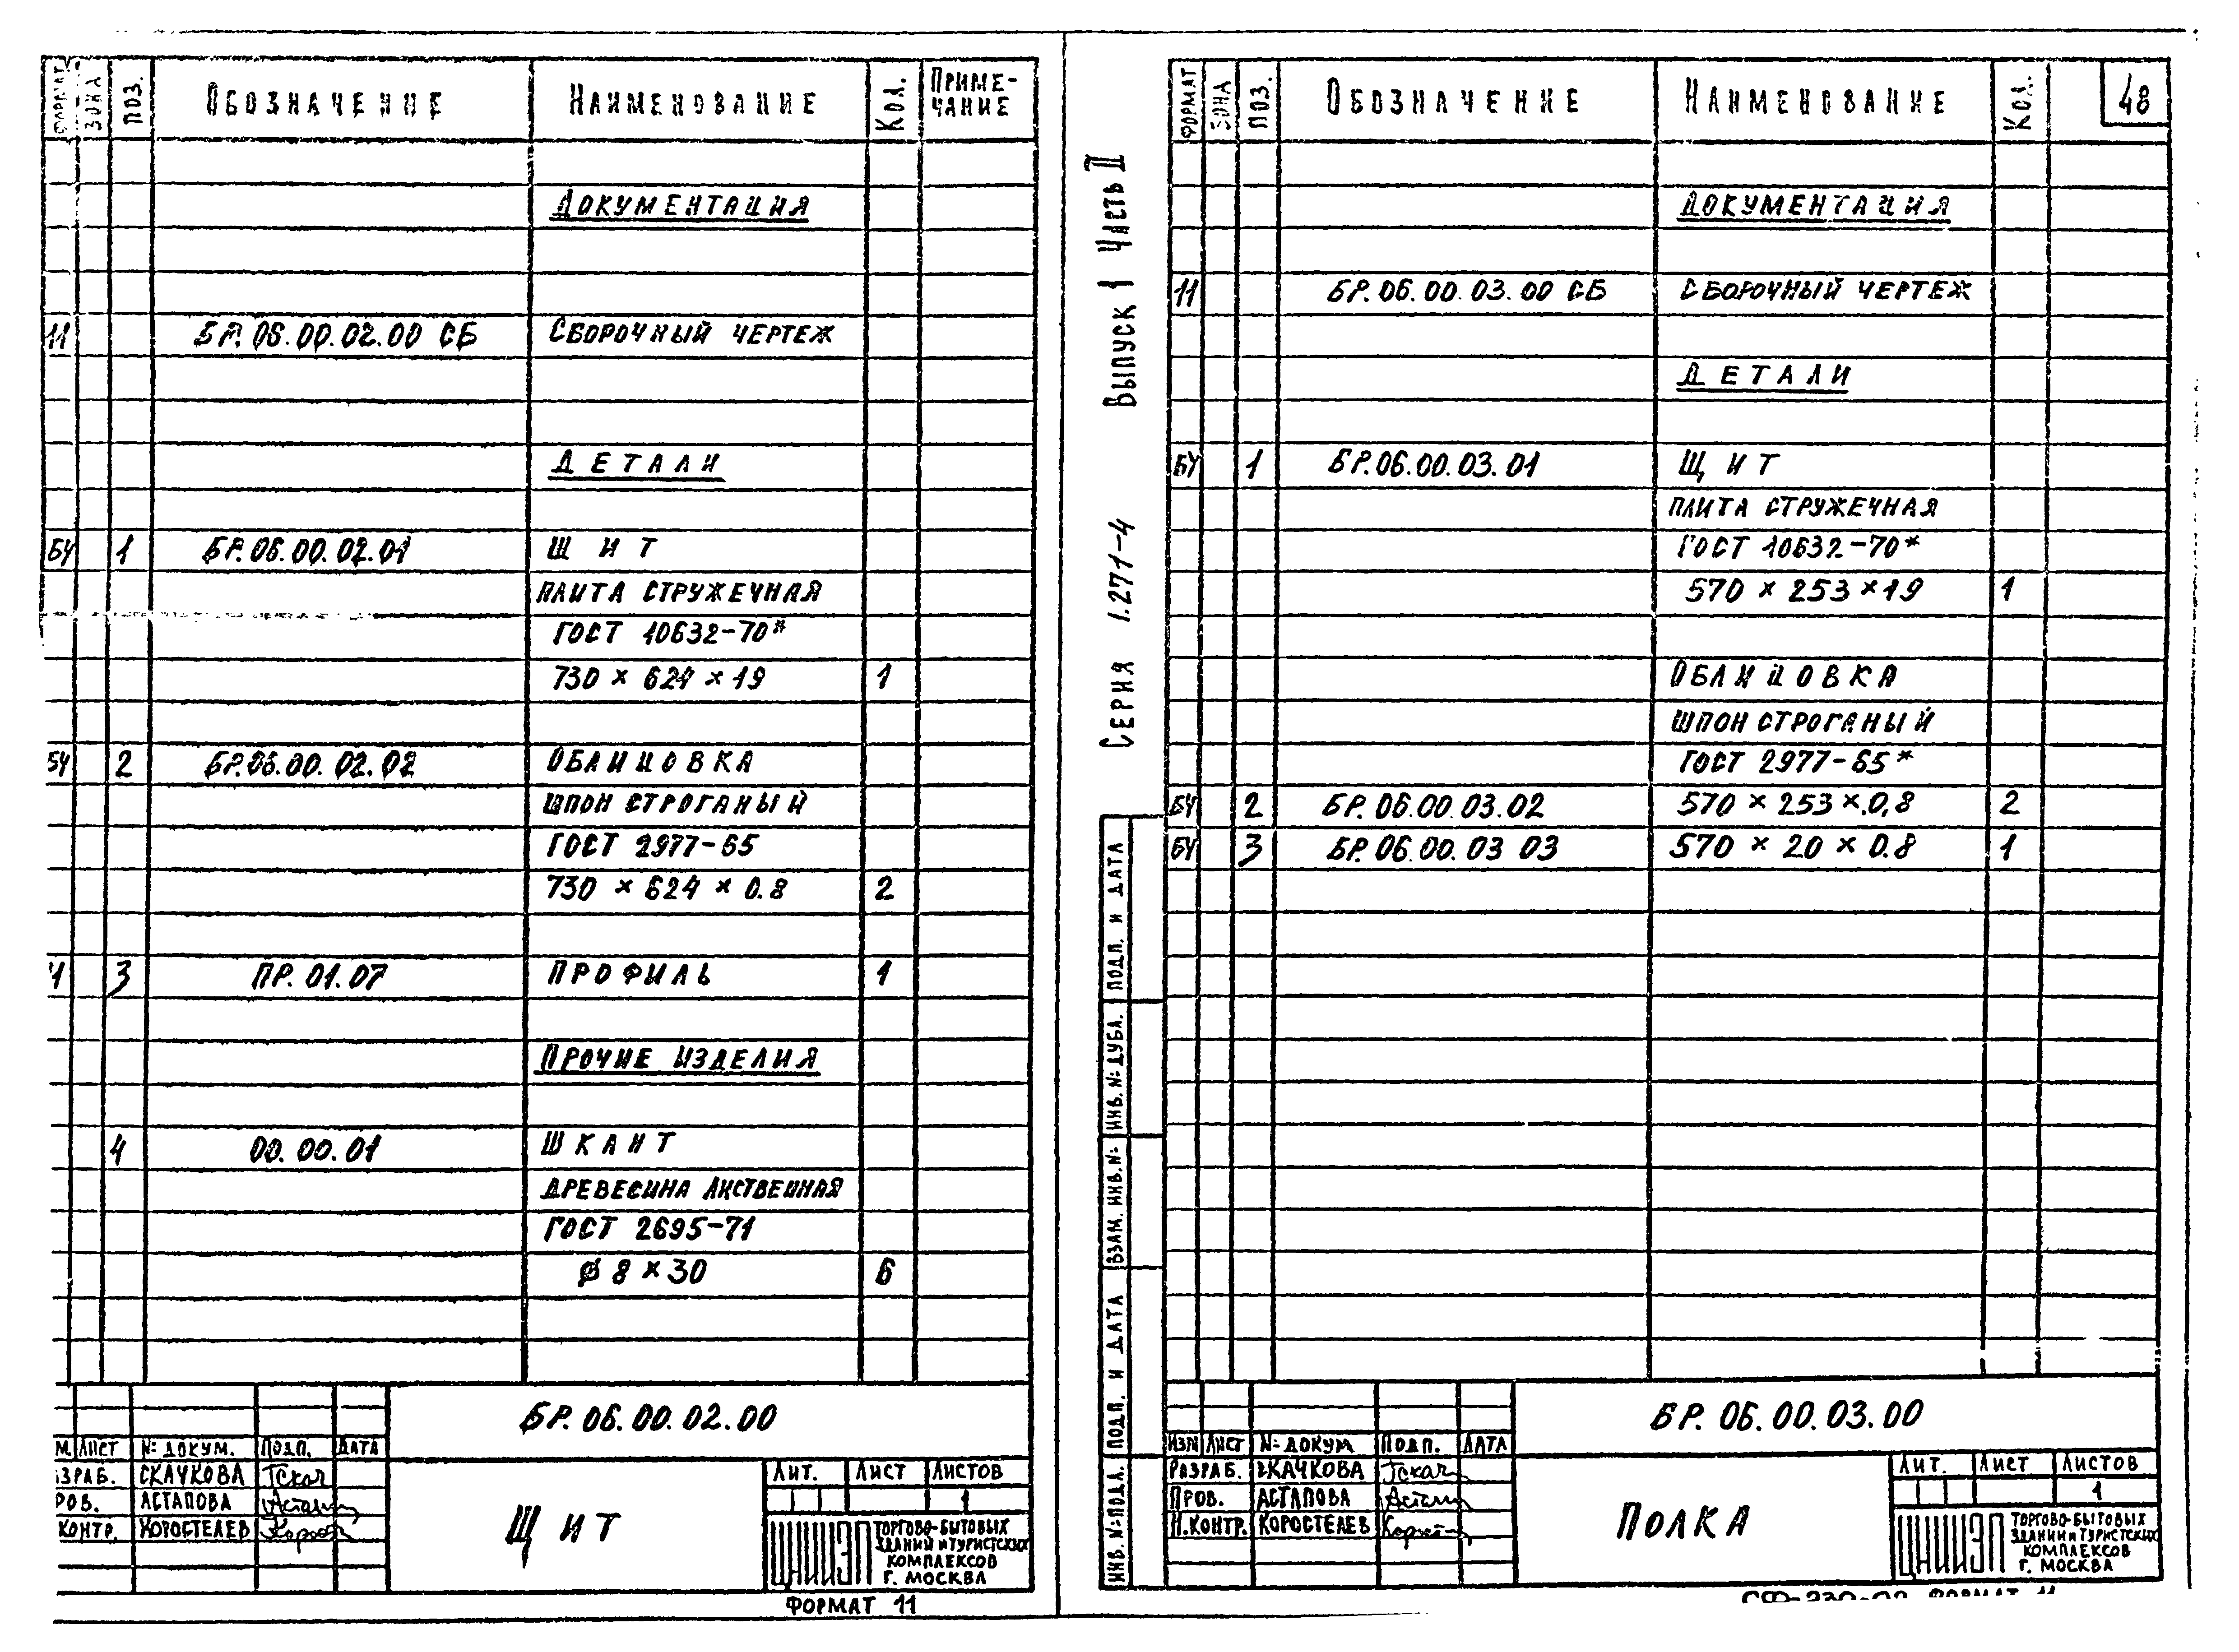 ФОРМАТ ЗОНА ПОЗ. ОБОЗНАЧЕНИЕ НАИМЕНОВАНИЕ КОЛ. ПРИМЕ-
ЧАНИЕ
ДОКУМЕНТАЦИЯ
11 БР.06.00.02.00 СБ СБОРОЧНЫЙ ЧЕРТЕЖ
ДЕТАЛИ
БЧ 1 БР.06.00.02.01 ЩИТ
ПЛИТА СТРУЖЕЧНАЯ
ГОСТ 10632-70*
730 × 624 × 19 1
БЧ 2 БР.06.00.02.02 ОБЛИЦОВКА
ШПОН СТРОГАНЫЙ
ГОСТ 2977-65
730 × 624 × 0.8 2
3 ПР.01.07 ПРОФИЛЬ 1
ПРОЧИЕ ИЗДЕЛИЯ
4 00.00.01 ШКАНТ
ДРЕВЕСИНА ЛИСТВЕННАЯ
ГОСТ 2695-71
Ø 8 × 30 6
БР.06.00.02.00
М. ЛИСТ № ДОКУМ. ПОДП. ДАТА
ЗРАБ. СКАЧКОВА
РОВ. АСТАПОВА
КОНТР. КОРОСТЕЛЕВ
ЩИТ
ЛИТ. ЛИСТ ЛИСТОВ
1
ЦНИИЭП ТОРГОВО-БЫТОВЫХ
ЗДАНИЙ И ТУРИСТСКИХ
КОМПЛЕКСОВ
Г. МОСКВА
ФОРМАТ 11
СЕРИЯ 1.271-4 ВЫПУСК 1 ЧАСТЬ II
ИНВ. № ПОДЛ. ПОДП. И ДАТА ВЗАМ. ИНВ. № ИНВ. № ДУБЛ. ПОДП. И ДАТА
ФОРМАТ ЗОНА ПОЗ. ОБОЗНАЧЕНИЕ НАИМЕНОВАНИЕ КОЛ. 48
ДОКУМЕНТАЦИЯ
11 БР.06.00.03.00 СБ СБОРОЧНЫЙ ЧЕРТЕЖ
ДЕТАЛИ
БЧ 1 БР.06.00.03.01 ЩИТ
ПЛИТА СТРУЖЕЧНАЯ
ГОСТ 10632-70*
570 × 253 × 19 1
ОБЛИЦОВКА
ШПОН СТРОГАНЫЙ
ГОСТ 2977-65*
БЧ 2 БР.06.00.03.02 570 × 253 × 0,8 2
БЧ 3 БР.06.00.03 03 570 × 20 × 0.8 1
БР.06.00.03.00
ИЗМ ЛИСТ № ДОКУМ ПОДП. ДАТА
РАЗРАБ. СКАЧКОВА
ПРОВ. АСТАПОВА
Н.КОНТР. КОРОСТЕЛЕВ
ПОЛКА
ЛИТ. ЛИСТ ЛИСТОВ
1
ЦНИИЭП ТОРГОВО-БЫТОВЫХ
ЗДАНИЙ И ТУРИСТСКИХ
КОМПЛЕКСОВ
Г. МОСКВА
ФОРМАТ 11